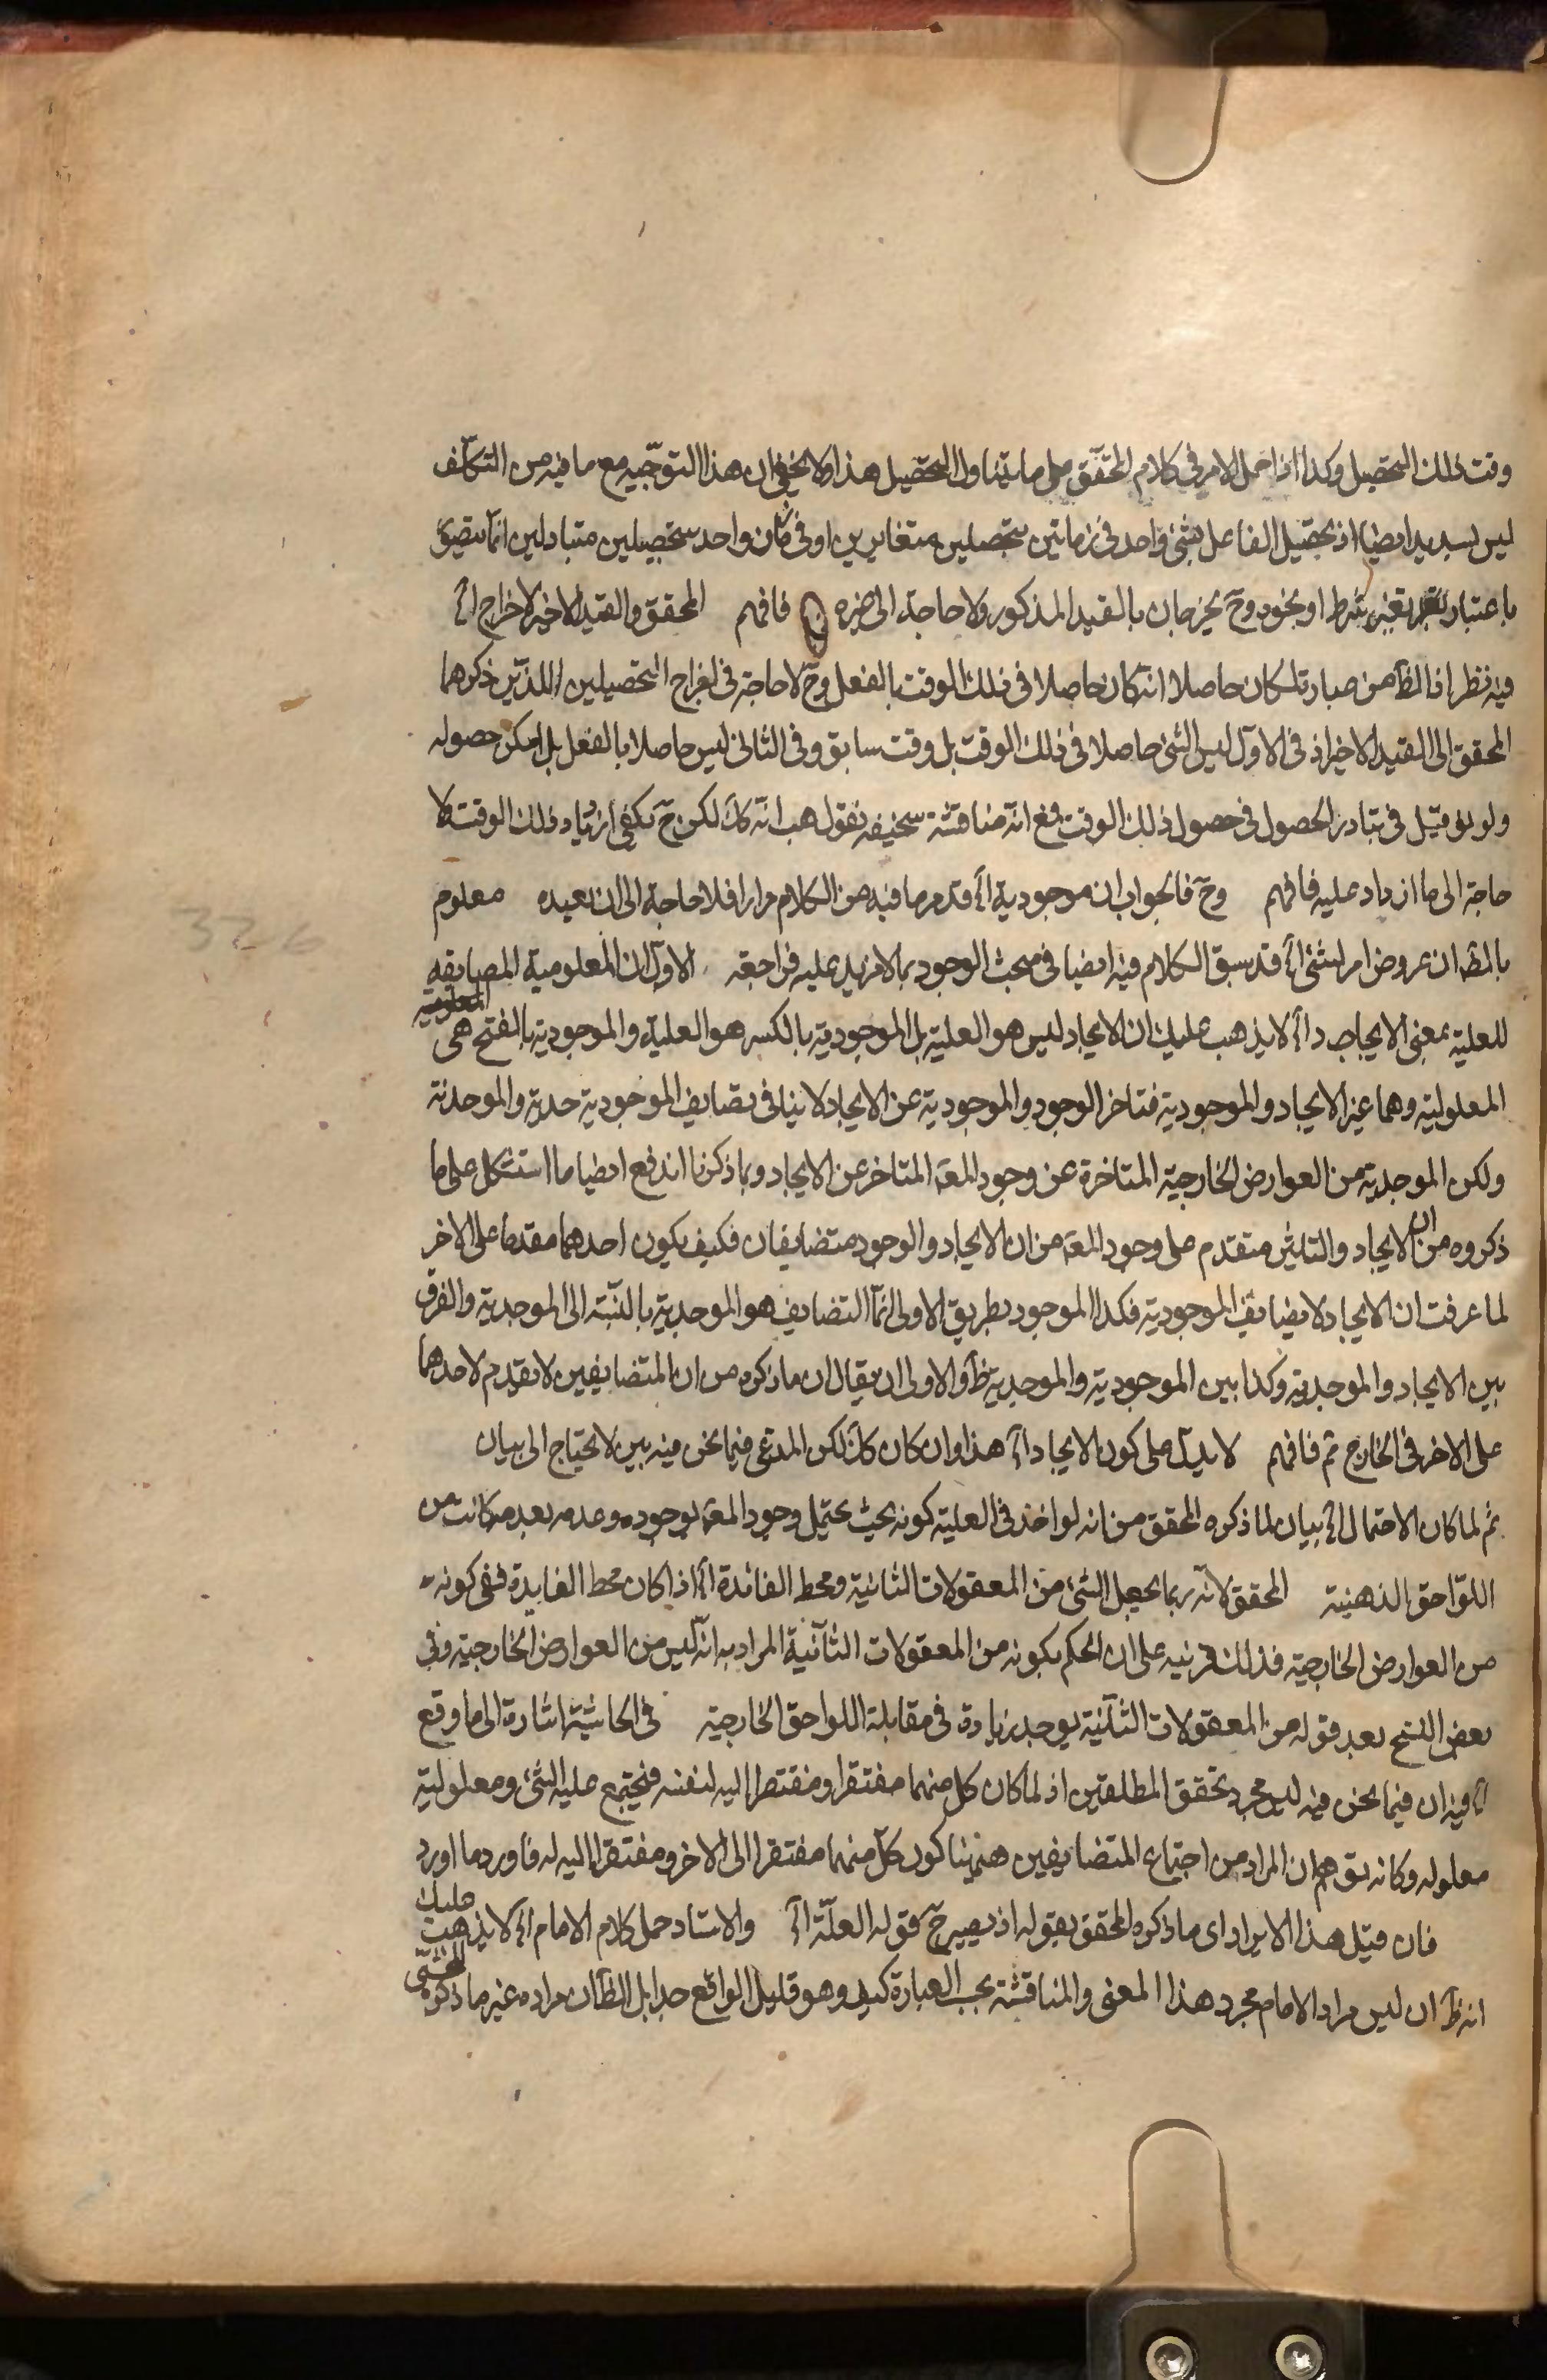 وقت ذلك التحصيل وكذا اذا حمل الامر فى كلام المحقق على ما يتناول التحصيل هذا ولا يخفى ان هذا التوجيه مع ما فيه من التكلف
ليس بسديد ايضا اذ تحصيل الفاعل لشئ واحد فى زمانين بتحصلين متغايرين او فى زمان واحد بتحصيلين متبادلين انما يتصور
باعتبار تغير شرط او نحوه وح يخرجان بالقيد المذكور ولا حاجة الى غيره فافهم المحقق والقيد الاخير لاخراج اه
فيه نظر اذ الظ من عبارته كان حاصلا انه كان حاصلا فى ذلك الوقت بالفعل وح لا حاجة فى اخراج التحصيلين اللذين ذكرهما
المحقق الى القيد الاخير اذ فى الاول ليس الشئ حاصلا فى ذلك الوقت بل وقت سابق وفى الثانى ليس حاصلا بالفعل بل امكن حصوله
ولو نوقش فى تبادر الحصول فى حصول ذلك الوقت فمع انه مناقشة سخيفه نقول هب انه كك لكن ح يكفى ازدياد ذلك الوقت فلا
حاجة الى ما ازداد عليه فافهم وح فالجواب ان موجودية اه قد مر ما فيه من الكلام مرارا فلا حاجة الى ان نعيده معلوم
بالمظ ان عروض امر لشئ اه قد سبق الكلام فيه ايضا فى مبحث الوجود بما لا مزيد عليه فراجعه الاول ان المعلومية المضايفه
المعلولية
للعلية بمعنى الايجاب داه لا يذهب عليك ان الايجاد ليس هو العلية بل الموجدية بالكسر هو العلية والموجودية بالفتح هى
المعلولية وهما غير الايجاد والموجودية فتاخر الوجود والموجودية عن الايجاد لا ينافى تضايف الموجودية حدية والموجدية
ولكن الموجدية من العوارض الخارجية المتاخرة عن وجود المعة المتاخر عن الايجاد وبما ذكرنا اندفع ايضا ما استشكل على ما
ذكروه من ان الايجاد والتاثير متقدم على وجود المعة من ان الايجاد والوجود متضايفان فكيف يكون احدهما مقدما على الاخر
لما عرفت ان الايجاد لا يضايف الموجودية فكذا الموجود بطريق الاولى انما التضايف هو الموجدية بالنسبة الى الموجدية والفرق
بين الايجاد والموجدية وكذا بين الموجودية والموجدية ظ والاولى ان يقال ان ما ذكره من ان المتضايفين لا تقدم لاحدهما
على الاخر فى الخارج ثم فافهم لا يدل على كون الايجاد اه هذا وان كان كك لكن المدعى فيما نحن فيه بين لا يحتاج الى بيان
ثم لما كان الاحتمال اه بيان لما ذكره المحقق من انه لو اخذ فى العلية كونه بحيث يحتمل وجود المعة بوجوده وعدمه بعدمه كانت من
اللواحق الذهنية المحقق لانه ربما يجعل الشئ من المعقولات الثانية ومحط الفائدة اه اذا كان محط الفايدة ففى كونه
من العوارض الخارجية فذلك قرينه على ان الحكم بكونه من المعقولات الثانية المراد به انه ليس من العوارض الخارجية وفى
بعض النسخ بعد قوله من المعقولات الثانية يوجد زيادة فى مقابلة اللواحق الخارجية فى الحاشية اشارة الى ما وقع
اه فيه ان فيما نحن فيه ليس مجرد تحقق المطلقتين اذ لما كان كل منهما مفتقرا ومفتقرا اليه لنفسه فيجتمع علية الشئ ومعلولية
معلوله وكانه توهم ان المراد من اجتماع المتضايفين هيهنا كون كل منهما مفتقرا الى الاخر ومفتقرا اليه له فاورد ما اورد
فان قيل هذا الايراد اى ما ذكره المحقق بقوله اذ يصير ح فقوله العلة اه والاستاد حمل كلام الامام اه لا يذهب عليك
انه ظ ان ليس مراد الامام مجرد هذا المعنى والمناقشة بحسب العبارة كيف وهو قليل الواقع جدا بل الظ ان مراده غير ما ذكره المحشى